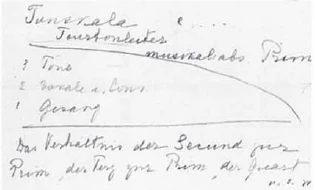 Tonskala
Tonstonleiter
musikal. abs. Prim
3 Töne
2 Vokale u. Cons.
1 Gesang
Das Verhältnis der Secund zur
Prim, der Terz zur Prim, der Quart